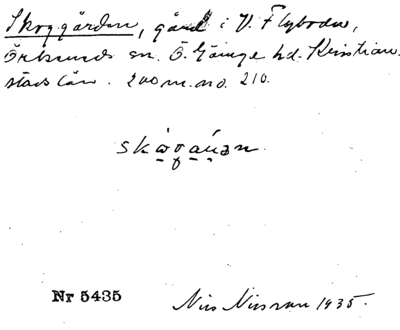 Skoggården, gård i V. Flyboda,
Örkeneds sn. Ö. Göinge hd. Kristian-
stads län. 200 m. no. 210.
Nr 5435
Nils Nilsson 1935.